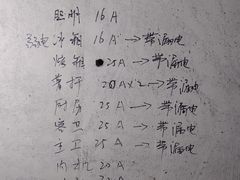 照明 16A
弱电 冰箱 16A → 带漏电
烤箱 25A → 带漏电
20A×2 → 带漏电
厨房 25A → 带漏电
客卫 25A → 带漏电
主卫 25A → 带漏电
内机 20A